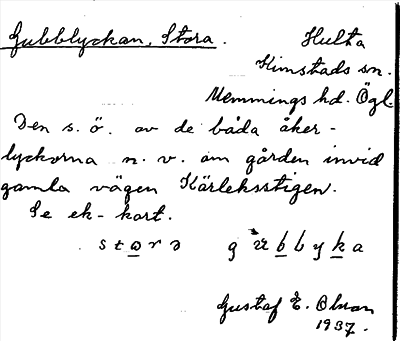 Gubblyckan, Stora.
Hulta
Kimstads sn.
Memmings hd. Ögl.
Den s. ö. av de båda åker-
lyckorna n. v. om gården invid
gamla vägen Kärleksstigen.
Se ek-kort.
Gustaf E. Olsson
1937.